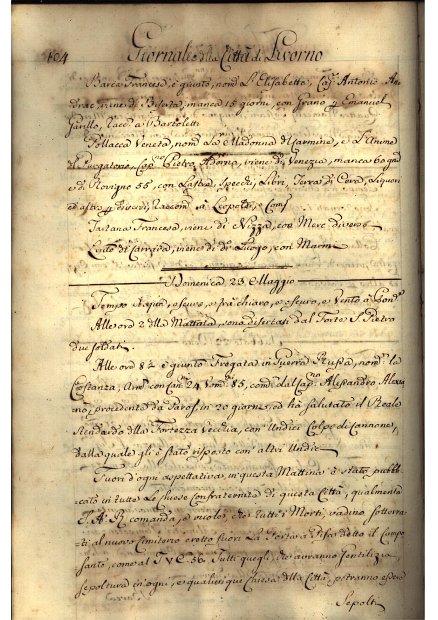 104 Giornali della Città di Livorno
Barca Francese, è giunto, nom.ª L'Elisabetta, Cap. Antonio An-
drac, viene di Biserta, manca 15 giorni, con grano p. Emanuel
racc. a Bartoletti
Pollacca Veneta, nom.ª La Madonna del Carmine, e L'Anime
del Purgatorio, Cap.no Pietro Adoria, viene di Venezia, manca 60 gni
di Rovigno 55, con Lastre, Specchi, Libri, Terra di Color, Liquori
ed altro p. diversi, raccom. a Leopoldo, e Comp.
Tartana Francese, viene di Nizza, con Merc. diverse
viene di d.º Luogo, con Marmi
Domenica, 23 Maggio
Tempo Acqua, e scuro, e frà chiaro, e oscuro, e Vento a
Alle ore 2 della Mattina, sono disertati dal Forte S. Pietro
due soldati.
Alle ore 8½ è giunto Fregata in Guerra Russa, nom.ª la
Costanza, Arm. con can. 24 Vom. 85, com. dal Cap.no Alessandro Alexia-
no, procedente da Paros, in 20 giorni, ed hà salutato il Reale
Stendardo della Fortezza Vecchia, con Undici Colpi di Cannone,
dalla quale gli è stato risposto con altri Undici
Fuori d'ogni aspettativa, in questa Mattina è stato pubbli-
cato in tutte Le Chiese Confraternite di questa Città, qualmente
S. A. R. comanda, e vuole, che tutti i Morti vadino sotterra-
ti al nuovo Cimiterio eretto fuori La Porta a Pisa detto il Campo
Santo, come al T. V. C. 56. Tutti quegli, che avranno gentilizia
sepoltura in ogni, e qualunque Chiesa della Città, potranno essere
Sepolti